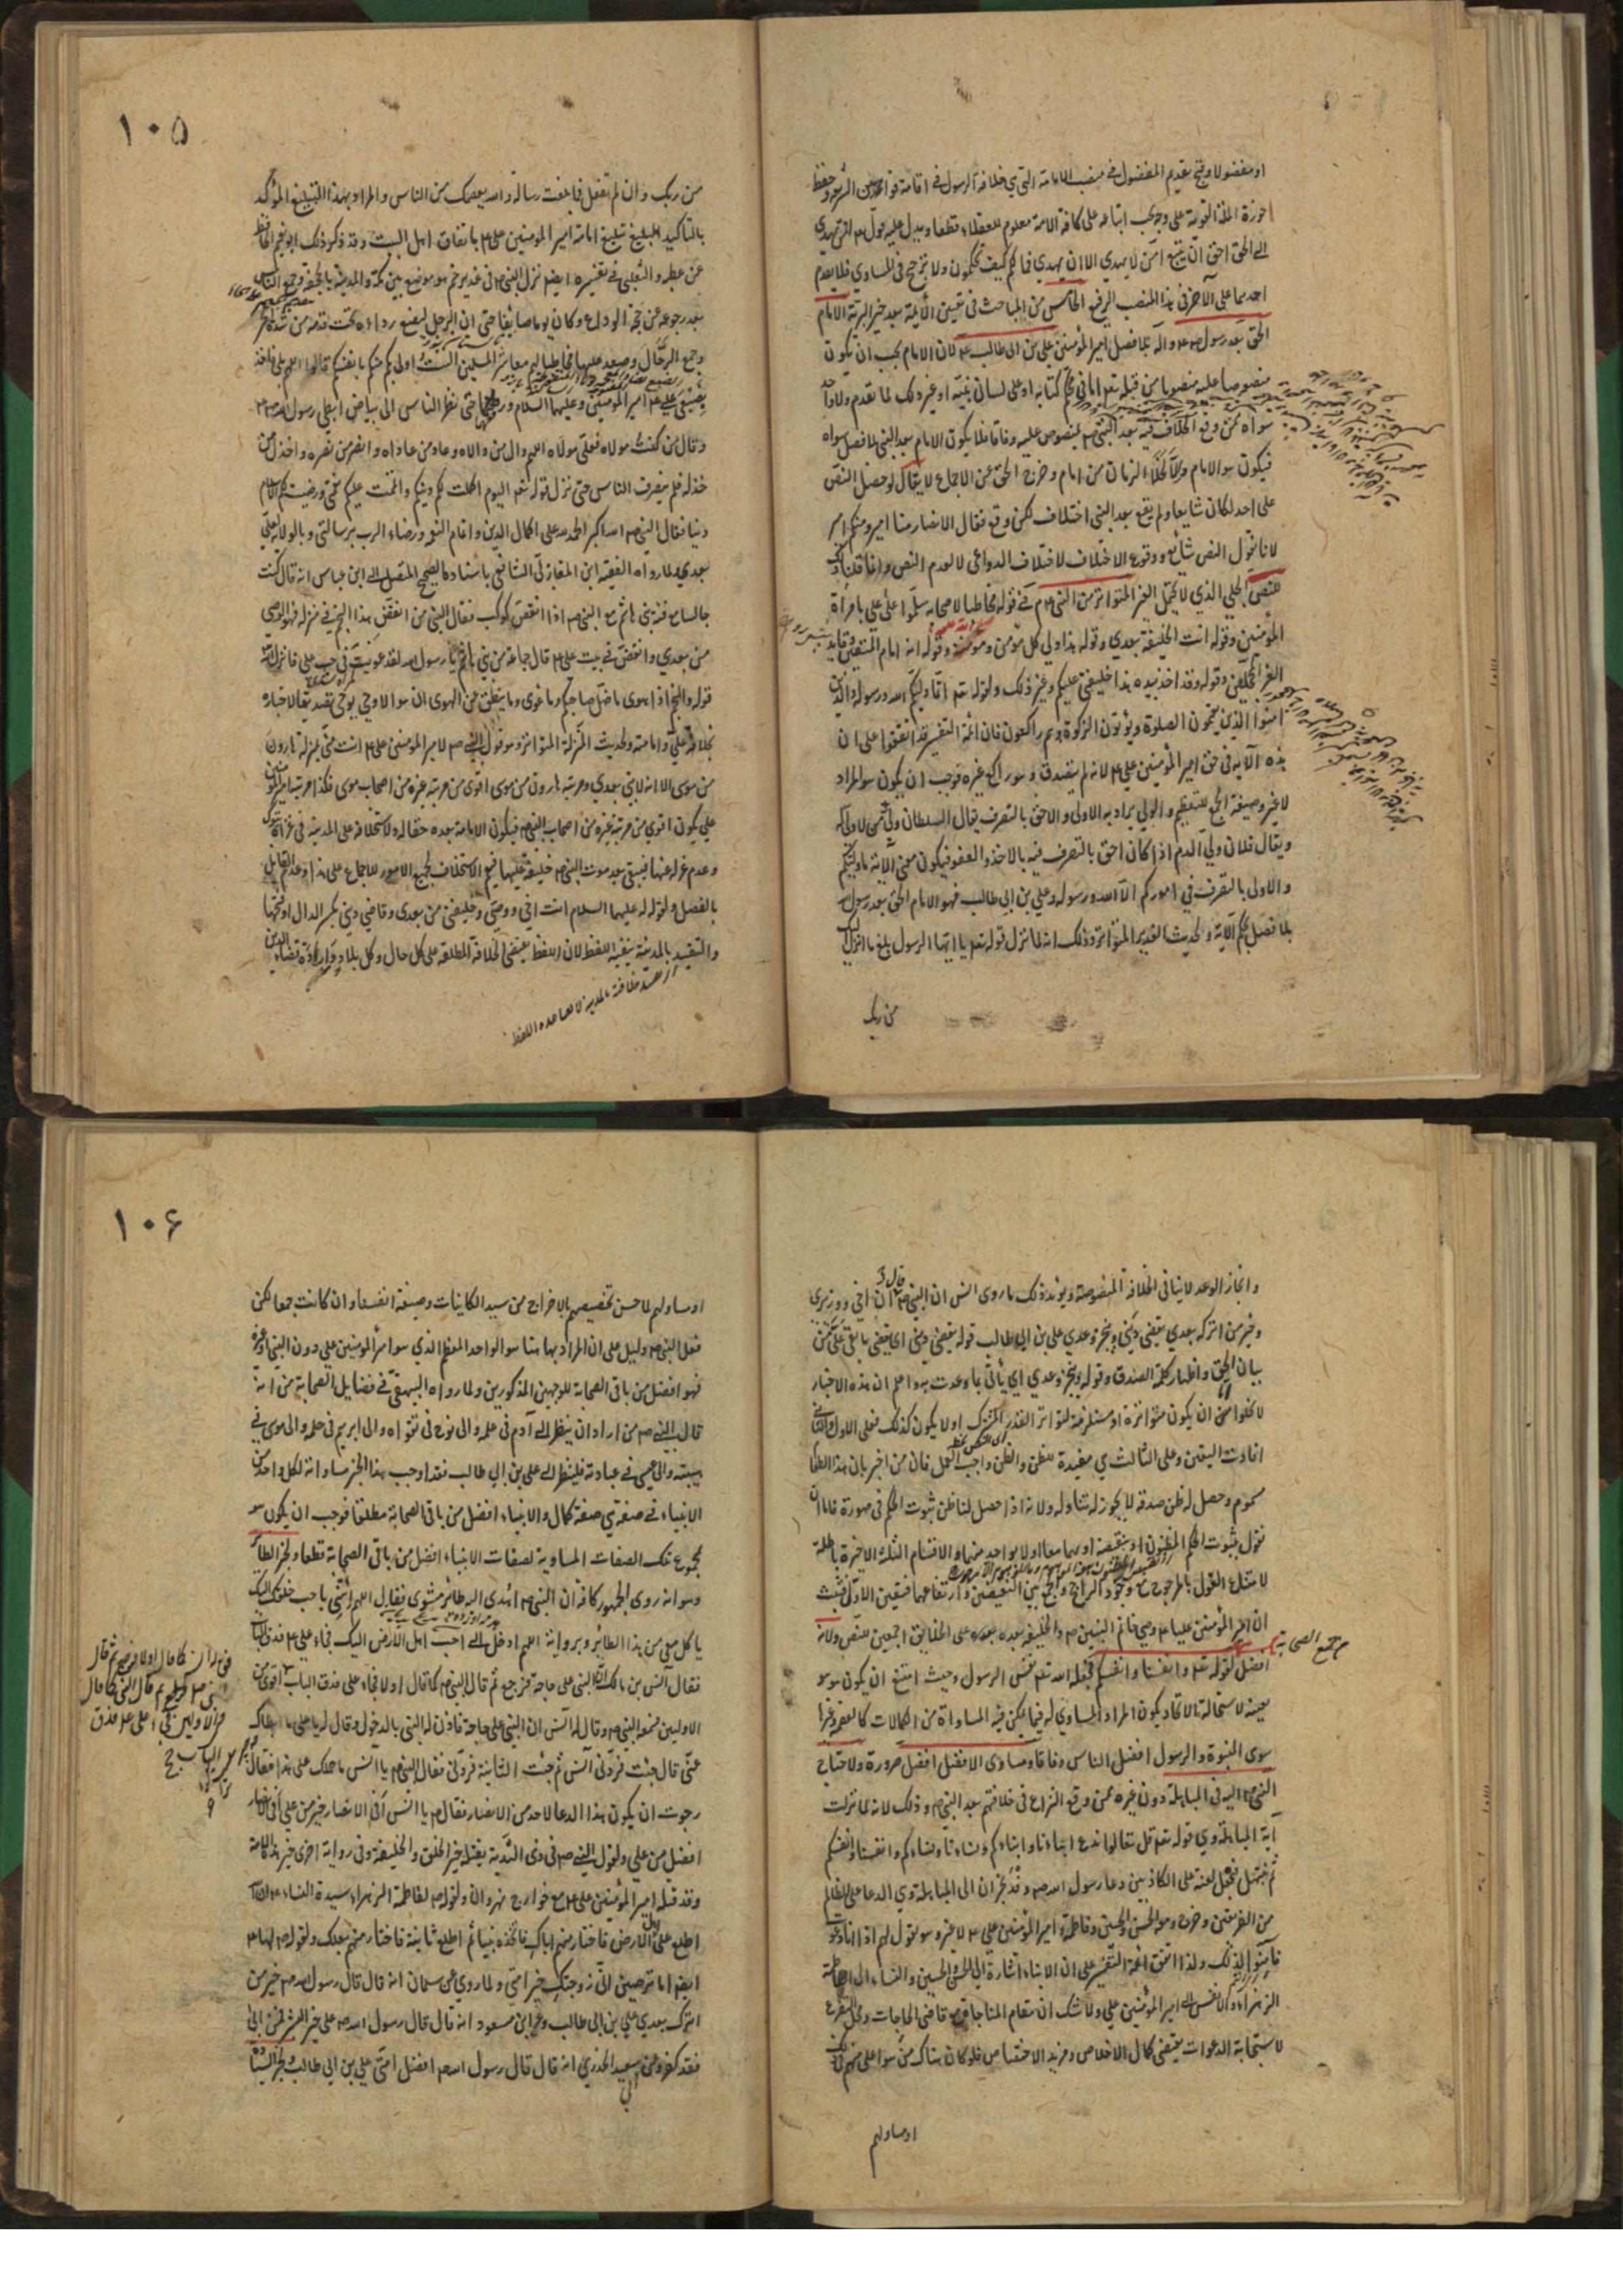 او مفضولا وقبح تقديم المفضول في منصب الامامة التي هي خلافة الرسول في اقامة قوانين الشرع وحفظ
حوزة الملة القويمة على وجه يجب اتباعه على كافة الامة معلوم للعقلاء قطعا ويدل عليه قوله تعالى افمن يهدي
الى الحق احق ان يتبع امن لا يهدي الا ان يهدى فما لكم كيف تحكمون ولا ترجيح في المساوي فلا يقدم
احدهما على الآخر في هذا المنصب الرفيع الخامس من المباحث في تعيين الائمة بعد خير البرية الامام
الحق بعد رسول الله ص وآله بلا فصل امير المؤمنين علي بن ابي طالب ع لان الامام يجب ان يكون
منصوصا عليه منصوبا من قبله تعالى اما في محكم كتابه او على لسان نبيه او غير ذلك لما تقدم ولا احد
سواه ممن وقع الخلاف فيه بعد النبي ص بمنصوص عليه وفاقا فلا يكون الامام بعد النبي بلا فصل سواه
فيكون هو الامام والا لخلا الزمان من امام وخرج الحق عن الاجماع لا يقال لو حصل النص
على احد لكان شايعا ولم يقع بعد النبي اختلاف لكن وقع فقال الانصار منا امير ومنكم امير
لانا نقول النص شائع ووقوع الاختلاف لاختلاف الدواعي لا لعدم النص وانما قلنا ذلك
للنص الجلي الذي لا يحتمل الغير المتواتر من النبي ص في قوله مخاطبا لاصحابه سلموا على علي بامرة
المؤمنين وقوله انت الخليفة بعدي وقوله هذا ولي كل مؤمن ومؤمنة وقوله انه امام المتقين وقايد
الغر المحجلين وقوله وقد اخذ بيده هذا خليفتي عليكم وغير ذلك ولقوله تعالى انما وليكم الله ورسوله والذين
امنوا الذين يقيمون الصلوة ويؤتون الزكوة وهم راكعون فان ائمة التفسير قد اتفقوا على ان
هذه الآية في حق امير المؤمنين علي ع لانه لم يتصدق وهو راكع غيره فوجب ان يكون هو المراد
لا غير وصيغة الجمع للتعظيم والولي يراد به الاولى والاحق بالتصرف يقال السلطان ولي من لا ولي له
ويقال فلان ولي الدم اذا كان احق بالتصرف فيه بالاخذ والعفو فيكون معنى الآية ما وليكم
والاولى بالتصرف في اموركم الا الله ورسوله وعلي بن ابي طالب فهو الامام الحق بعد رسول الله
بلا فصل بحكم الآية ولحديث الغدير المتواتر وذلك انه لما نزل قوله تعالى يا ايها الرسول بلغ ما انزل اليك
من ربك
١٠٥
من ربك وان لم تفعل فما بلغت رسالته والله يعصمك من الناس والمراد بهذا التبليغ المؤكد
بالتاكيد البليغ تبليغ امامة امير المؤمنين علي ع باتفاق اهل البيت وقد ذكر ذلك ابو نعيم الحافظ
عن عطية والثعلبي في تفسيره ايضا نزل النبي ص في غدير خم هو موضع بين مكة والمدينة بالجحفة وجمع الناس
بعد رجوعه عن حجة الوداع وكان يوما صايفا حتى ان الرجل ليضع رداءه تحت قدمه من شدة الحر
وجمع الرحال وصعد عليها مخاطبا لهم معاشر المسلمين الست اولى بكم منكم بانفسكم قالوا اللهم بلى فاخذ
بضبعي علي ع امير المؤمنين وعليهما السلام ورفعها حتى نظر الناس الى بياض ابطي رسول الله ص
وقال من كنت مولاه فعلي مولاه اللهم وال من والاه وعاد من عاداه وانصر من نصره واخذل من
خذله فلم ينصرف الناس حتى نزل قوله تعالى اليوم اكملت لكم دينكم واتممت عليكم نعمتي ورضيت لكم الاسلام
دينا فقال النبي ص الله اكبر الحمد لله على اكمال الدين واتمام النعم ورضاء الرب برسالتي وبالولاية لعلي
بعدي ولما رواه الفقيه ابن المغازلي الشافعي باسناده الصحيح المتصل الى ابن عباس انه قال كنت
جالسا مع فتية بني هاشم مع النبي ص اذا انقض كوكب فقال النبي من انقض هذا النجم في منزله فهو الوصي
من بعدي وانقض في بيت علي ع قال جماعة من بني هاشم يا رسول الله لقد غويت في حب علي فانزل الله
قوله والنجم اذا هوى ما ضل صاحبكم وما غوى وما ينطق عن الهوى ان هو الا وحي يوحى تصديقا لاخباره
بخلافة علي وامامته ولحديث المنزلة المتواتر وهو قول النبي ص لامير المؤمنين علي ع انت مني بمنزلة هارون
من موسى الا انه لا نبي بعدي ومرتبة هارون من موسى اقوى من مرتبة غيره من اصحاب موسى فكذا مرتبة امير المؤمنين
علي يكون اقوى من مرتبة غيره من اصحاب النبي ص فيكون الامامة بعده حقا له ولاستخلافه على المدينة في غزاة تبوك
وعدم عزله عنها فيبقى بعد موت النبي ص خليفة عليها فيعم الاستخلاف لجميع الامور للاجماع على هذا وعدم القايل
بالفصل ولقوله له عليهما السلام انت اخي ووصيي وخليفتي من بعدي وقاضي ديني بكسر الدال او فتحها
والتقييد بالمدينة ينفيه اللفظ لان اللفظ يقتضي الخلافة المطلقة على كل حال وكل بلاد وارادة قضاء الدين
وانجاز الوعد لا ينافي الخلافة المنصوصة ويؤيد ذلك ما روى انس ان النبي ص قال ان اخي ووزيري
وخير من اتركه بعدي يقضي ديني وينجز وعدي علي بن ابي طالب قوله يقضي ديني اي يقضي ما بقي علي من
بيان الحق واظهار كلمة الصدق وقوله وينجز وعدي اي يأتي بما وعدت به واعلم ان هذه الاخبار
لا يخلوا من ان يكون متواترة او مستلزمة لتواتر القدر المشترك او لا يكون كذلك فعلى الاول والثاني
افادت اليقين وعلى الثالث هي مفيدة للظن والظن واجب العمل فان من اخبر بان هذا الطعام
مسموم وحصل له ظن صدقه لا يجوز له تناوله ولانه اذا حصل لنا ظن ثبوت الحكم في صورة فاما ان
نقول بثبوت الحكم المظنون او بنقيضه او بهما معا او لا بواحد منهما والاقسام الثلثة الاخيرة باطلة
لامتناع القول بالمرجوح مع وجود الراجح والجمع بين النقيضين وارتفاعهما فتعين الاول فثبت
ان امير المؤمنين عليا ع وصي خاتم النبيين ص والخليفة بعده على الخلايق اجمعين للنص ولانه
من جميع الصحابة
افضل لقوله تعالى وانفسنا وانفسكم فجعله الله تعالى نفس الرسول وحيث امتنع ان يكون هو هو
بعينه لاستحالة الاتحاد يكون المراد المساوي له فيما يمكن فيه المساواة من الكمالات كالعصمة وغيرها
سوى النبوة والرسول افضل الناس وفاقا ومساوي الافضل افضل ضرورة ولاحتياج
النبي ص اليه في المباهلة دون غيره ممن وقع النزاع في خلافتهم بعد النبي ص وذلك لانه لما نزلت
آية المباهلة وهي قوله تعالى قل تعالوا ندع ابناءنا وابناءكم ونساءنا ونساءكم وانفسنا وانفسكم
ثم نبتهل فنجعل لعنة الله على الكاذبين دعا رسول الله ص وفد نجران الى المباهلة وهي الدعا على الظالم
من الفريقين وخرج ومعه الحسن والحسين وفاطمة وامير المؤمنين علي ع لا غير وهو يقول لهم اذا انا دعوت
فامنوا لذلك ولذا اتفق ائمة التفسير على ان الابناء اشارة الى الحسن والحسين والنساء الى فاطمة
الزهراء والانفس الى امير المؤمنين علي ولا شك ان مقام المناجاة مع قاضي الحاجات ومحل التضرع
لاستجابة الدعوات يقتضي كمال الاخلاص ومزيد الاختصاص فلو كان هناك من هو اعلى منهم
او مساو لهم
١٠۶
او مساو لهم لما حسن تخصيصهم بالاخراج من سيد الكاينات وصيغة انفسنا وان كانت جمعا لكن
فعل النبي ص دليل على ان المراد بها هنا هو الواحد المعظم الذي هو امير المؤمنين علي دون النبي او غيره
فهو افضل من باقي الصحابة للوجهين المذكورين ولما رواه البيهقي في فضايل الصحابة من انه
قال النبي ص من اراد ان ينظر الى آدم في علمه والى نوح في تقواه والى ابرهيم في حلمه والى موسى في
هيبته والى عيسى في عبادته فلينظر الى علي بن ابي طالب فقد اوجب هذا الخبر مساواته لكل واحد من
الانبياء في صفة هي صفة كمال والانبياء افضل من باقي الصحابة مطلقا فوجب ان يكون هو
بمجموع تلك الصفات المساوية لصفات الانبياء افضل من باقي الصحابة قطعا ولخبر الطائر
وهو انه روى الجمهور كافة ان النبي ص اهدي اليه طائر مشوي فقال اللهم ائتني باحب خلقك اليك
ياكل معي من هذا الطائر وبرواية اللهم ادخل الي احب اهل الارض اليك فجاء علي ع فدق الباب
فقال انس بن مالك ان النبي على حاجة فرجع ثم قال النبي ص كما قال اولا فجاء علي فدق الباب اقوى من
الاوليين فسمعه النبي ص وقال له انس ان النبي على حاجة فاذن له النبي بالدخول وقال له يا علي ما ابطاك
عني قال جئت فردني انس ثم جئت الثانية فردني فقال النبي ص يا انس ما حملك على هذا فقال
رجوت ان يكون هذا الدعا لاحد من الانصار فقال ص يا انس أفي الانصار خير من علي أفي الانصار
افضل من علي ولقول النبي ص في ذي الثدية يقتله خير الخلق والخليفة وفي رواية اخرى خير هذه الامة
وقد قتله امير المؤمنين علي ع مع خوارج نهروان ولقوله ص لفاطمة الزهراء سيدة النساء ع ان الله
اطلع على اهل الارض فاختار منهم اباك فاتخذه نبيا ثم اطلع ثانية فاختار منهم بعلك ولقوله ص لها ع
ايضا اما ترضين اني زوجتك خير امتي ولما روي عن سلمان انه قال قال رسول الله ص خير من
اترك بعدي علي بن ابي طالب وعن ابن مسعود انه قال قال رسول الله ص علي خير البشر فمن ابى
فقد كفر وعن ابي سعيد الخدري انه قال قال رسول الله ص افضل امتي علي بن ابي طالب ولخبر السيادة